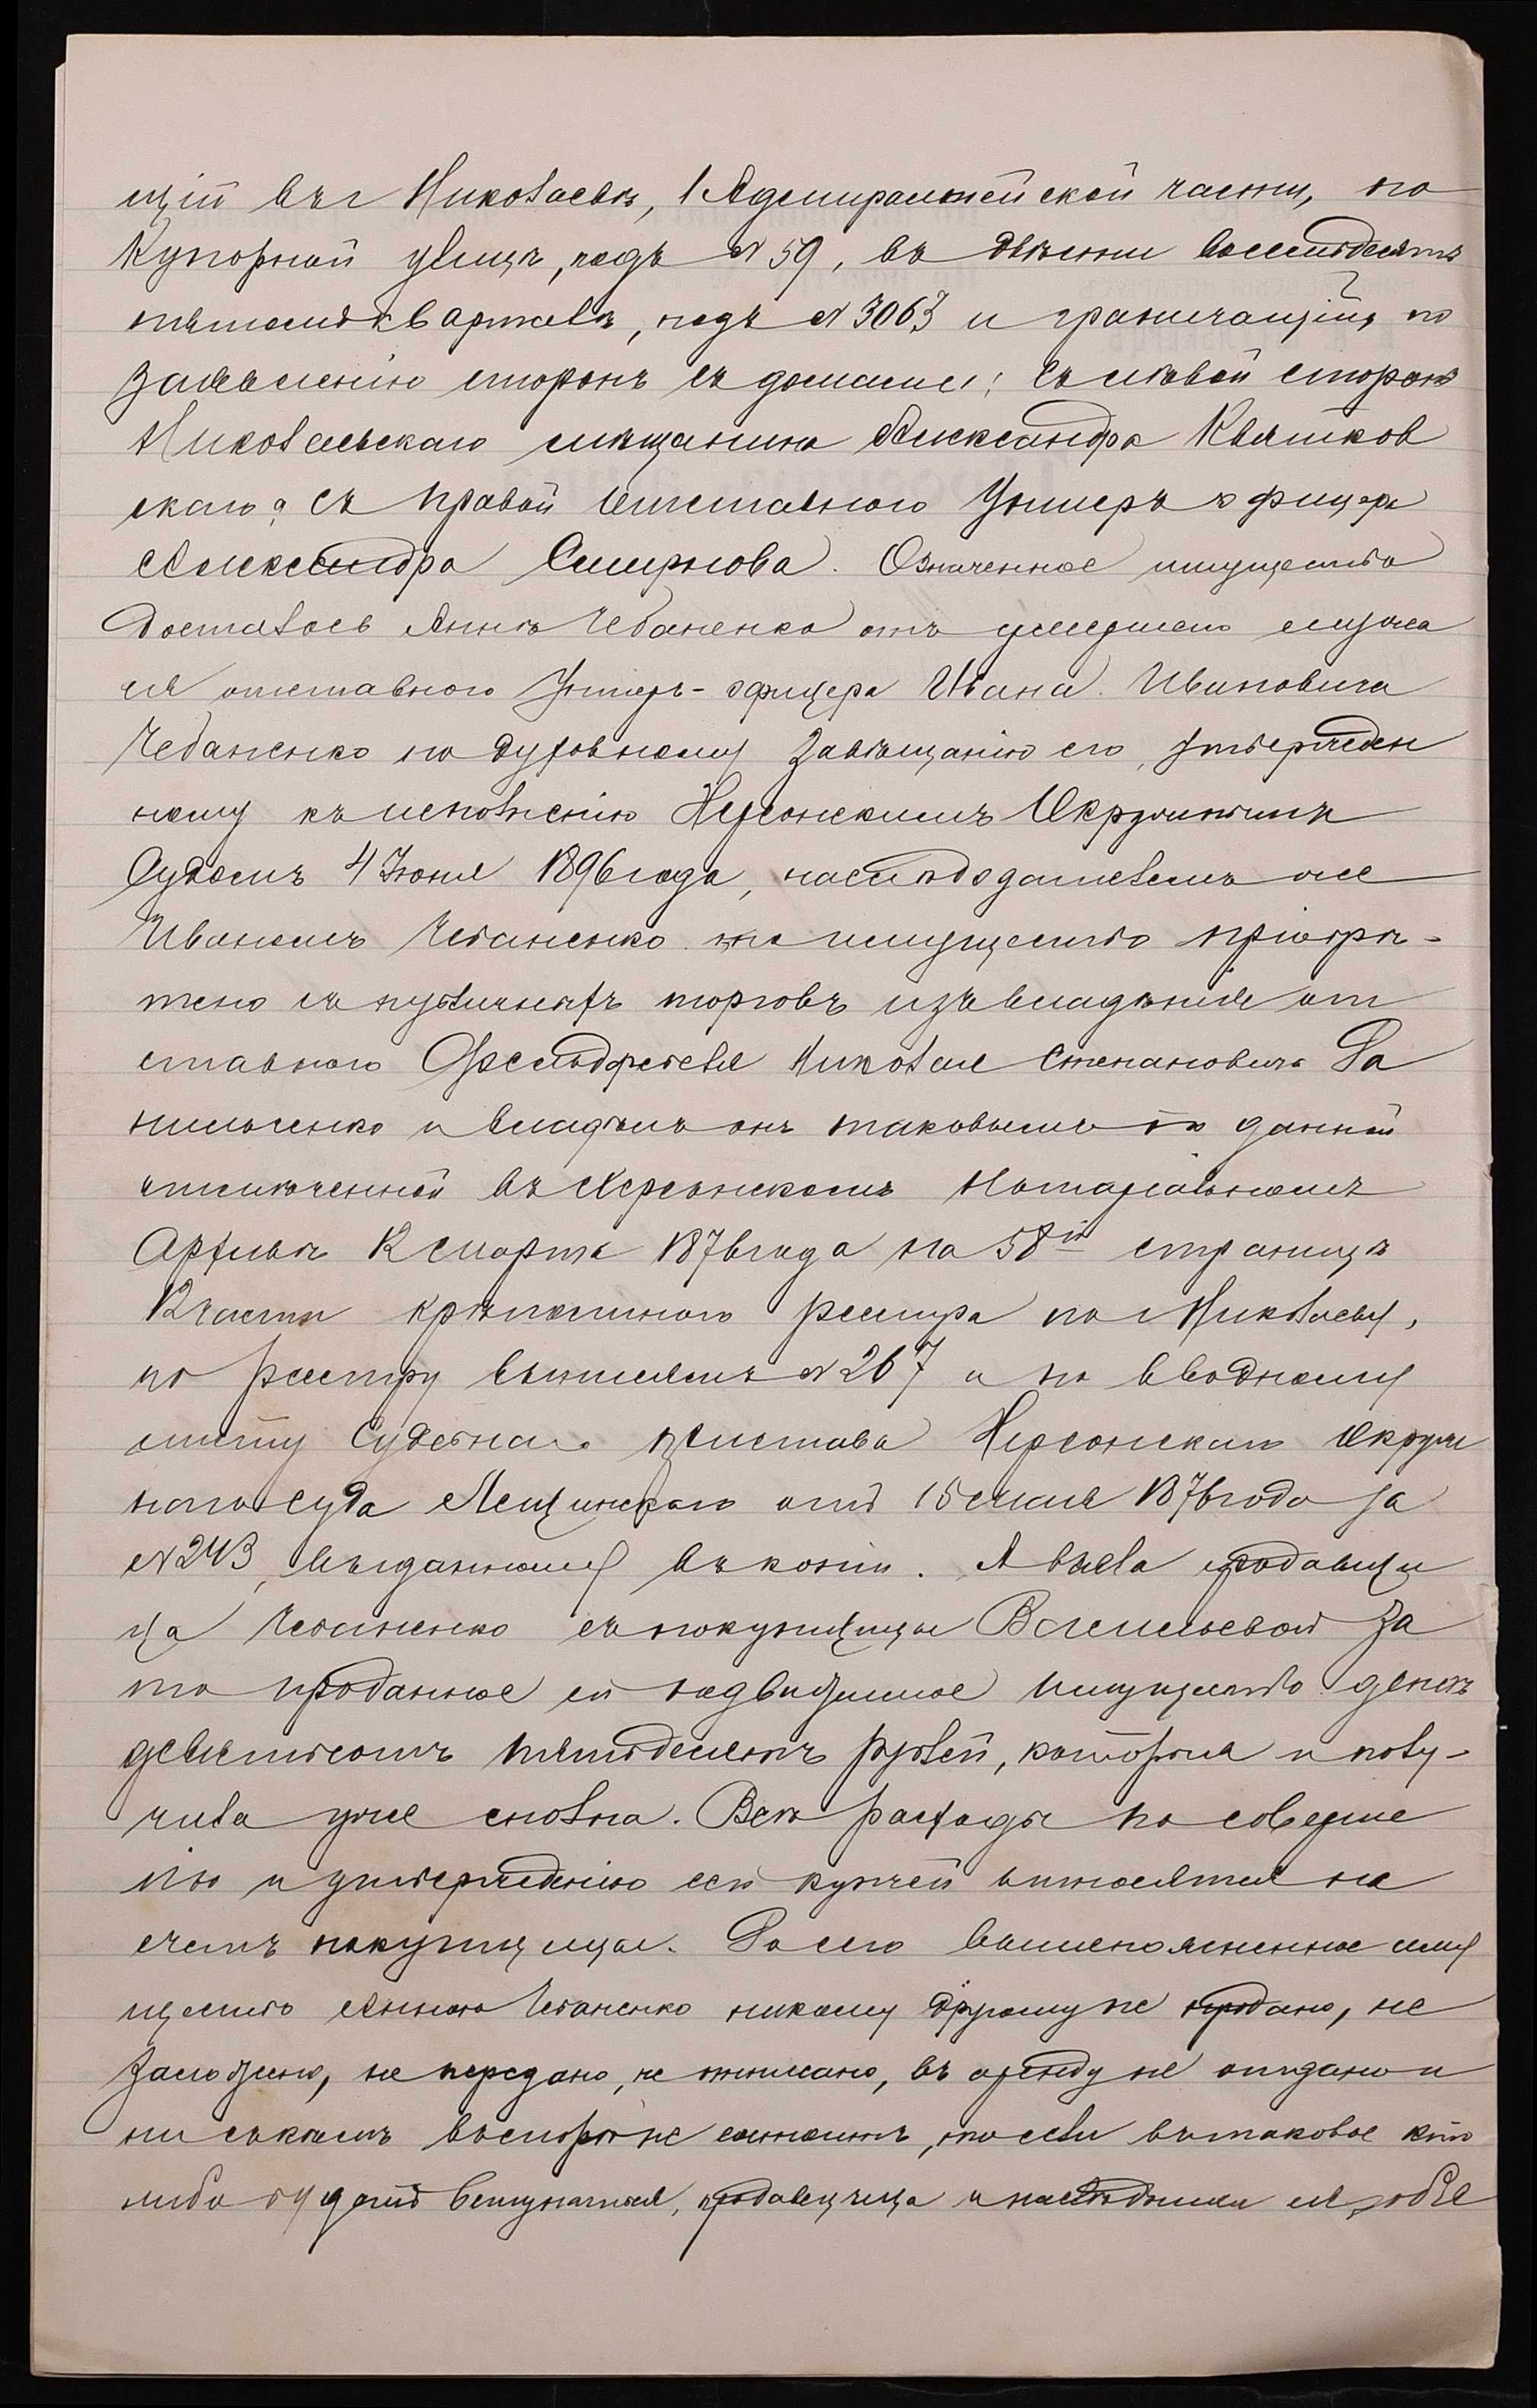 щій въ г Николаевѣ, 1 Адмиралтейской части, по
Купорной улицѣ, подъ № 59, въ двѣсти восемьдесятъ
пятомъ кварталѣ, подъ № 3063 и граничащій, по
заявленію сторонъ съ домами: съ лѣвой стороны
Николаевскаго мѣщанина Александра Квятков
скаго а съ правой отставного Унтеръ офицера
Александра Смирнова. Означенное имущество
досталось Аннѣ Чебаненко отъ умершаго мужа
ея отставного Унтеръ-офицера Ивана Ивановича
Чебаненко по духовному завѣщанію его, утвержден
ному къ исполненію Херсонскимъ Окружнымъ
Судомъ 4 Іюня 1896 года, наслѣдодателемъ же
Иваномъ Чебаненко имущество пріобрѣ-
тено съ публичныхъ торговъ изъ владѣнія от
ставного Фельдфебеля Николая Степановича Да
нильченко и владѣлъ онъ таковымъ по данной
отмѣченной въ Херсонскомъ Нотаріальномъ
Архивѣ 12 марта 1876 года на 58й страницѣ
12 части крѣпостного реестра по г Николаеву,
по реестру № 267 и по вводному
листу Судебнаго пристава Херсонскаго Окруж
наго суда Лещинскаго отъ 15 мая 1876 года за
№ 243, выданному въ копіи. А взяла продавщи
ца Чебаненко съ покупщицы Васильевой за
то проданное ей недвижимое имущество денегъ
девятьсотъ пятьдесятъ рублей, которыя и полу-
чила уже сполна. Всѣ расходы по соверше
нію и утвержденію сей купчей относятся на
счетъ покупщицы. До сего вышепоясненное иму
щество Анною Чебаненко никому другому не продано, не
заложено, не передано, не отписано, въ аренду не отдано и
ни съ кѣмъ въ спорѣ не состоитъ, то если въ таковое кто
либо будетъ вступаться, продавщица и наслѣдники ея обя